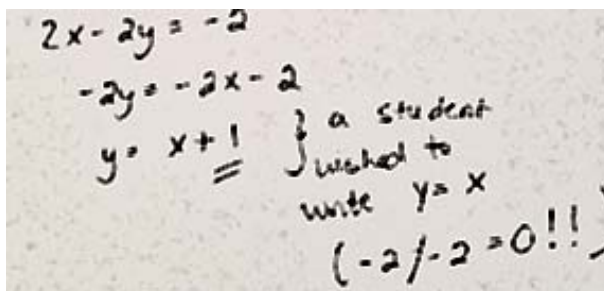 2x - 2y = -2
-2y = -2x - 2
y = x + 1 } a student
wished to
write y = x
(-2/-2 = 0!!)